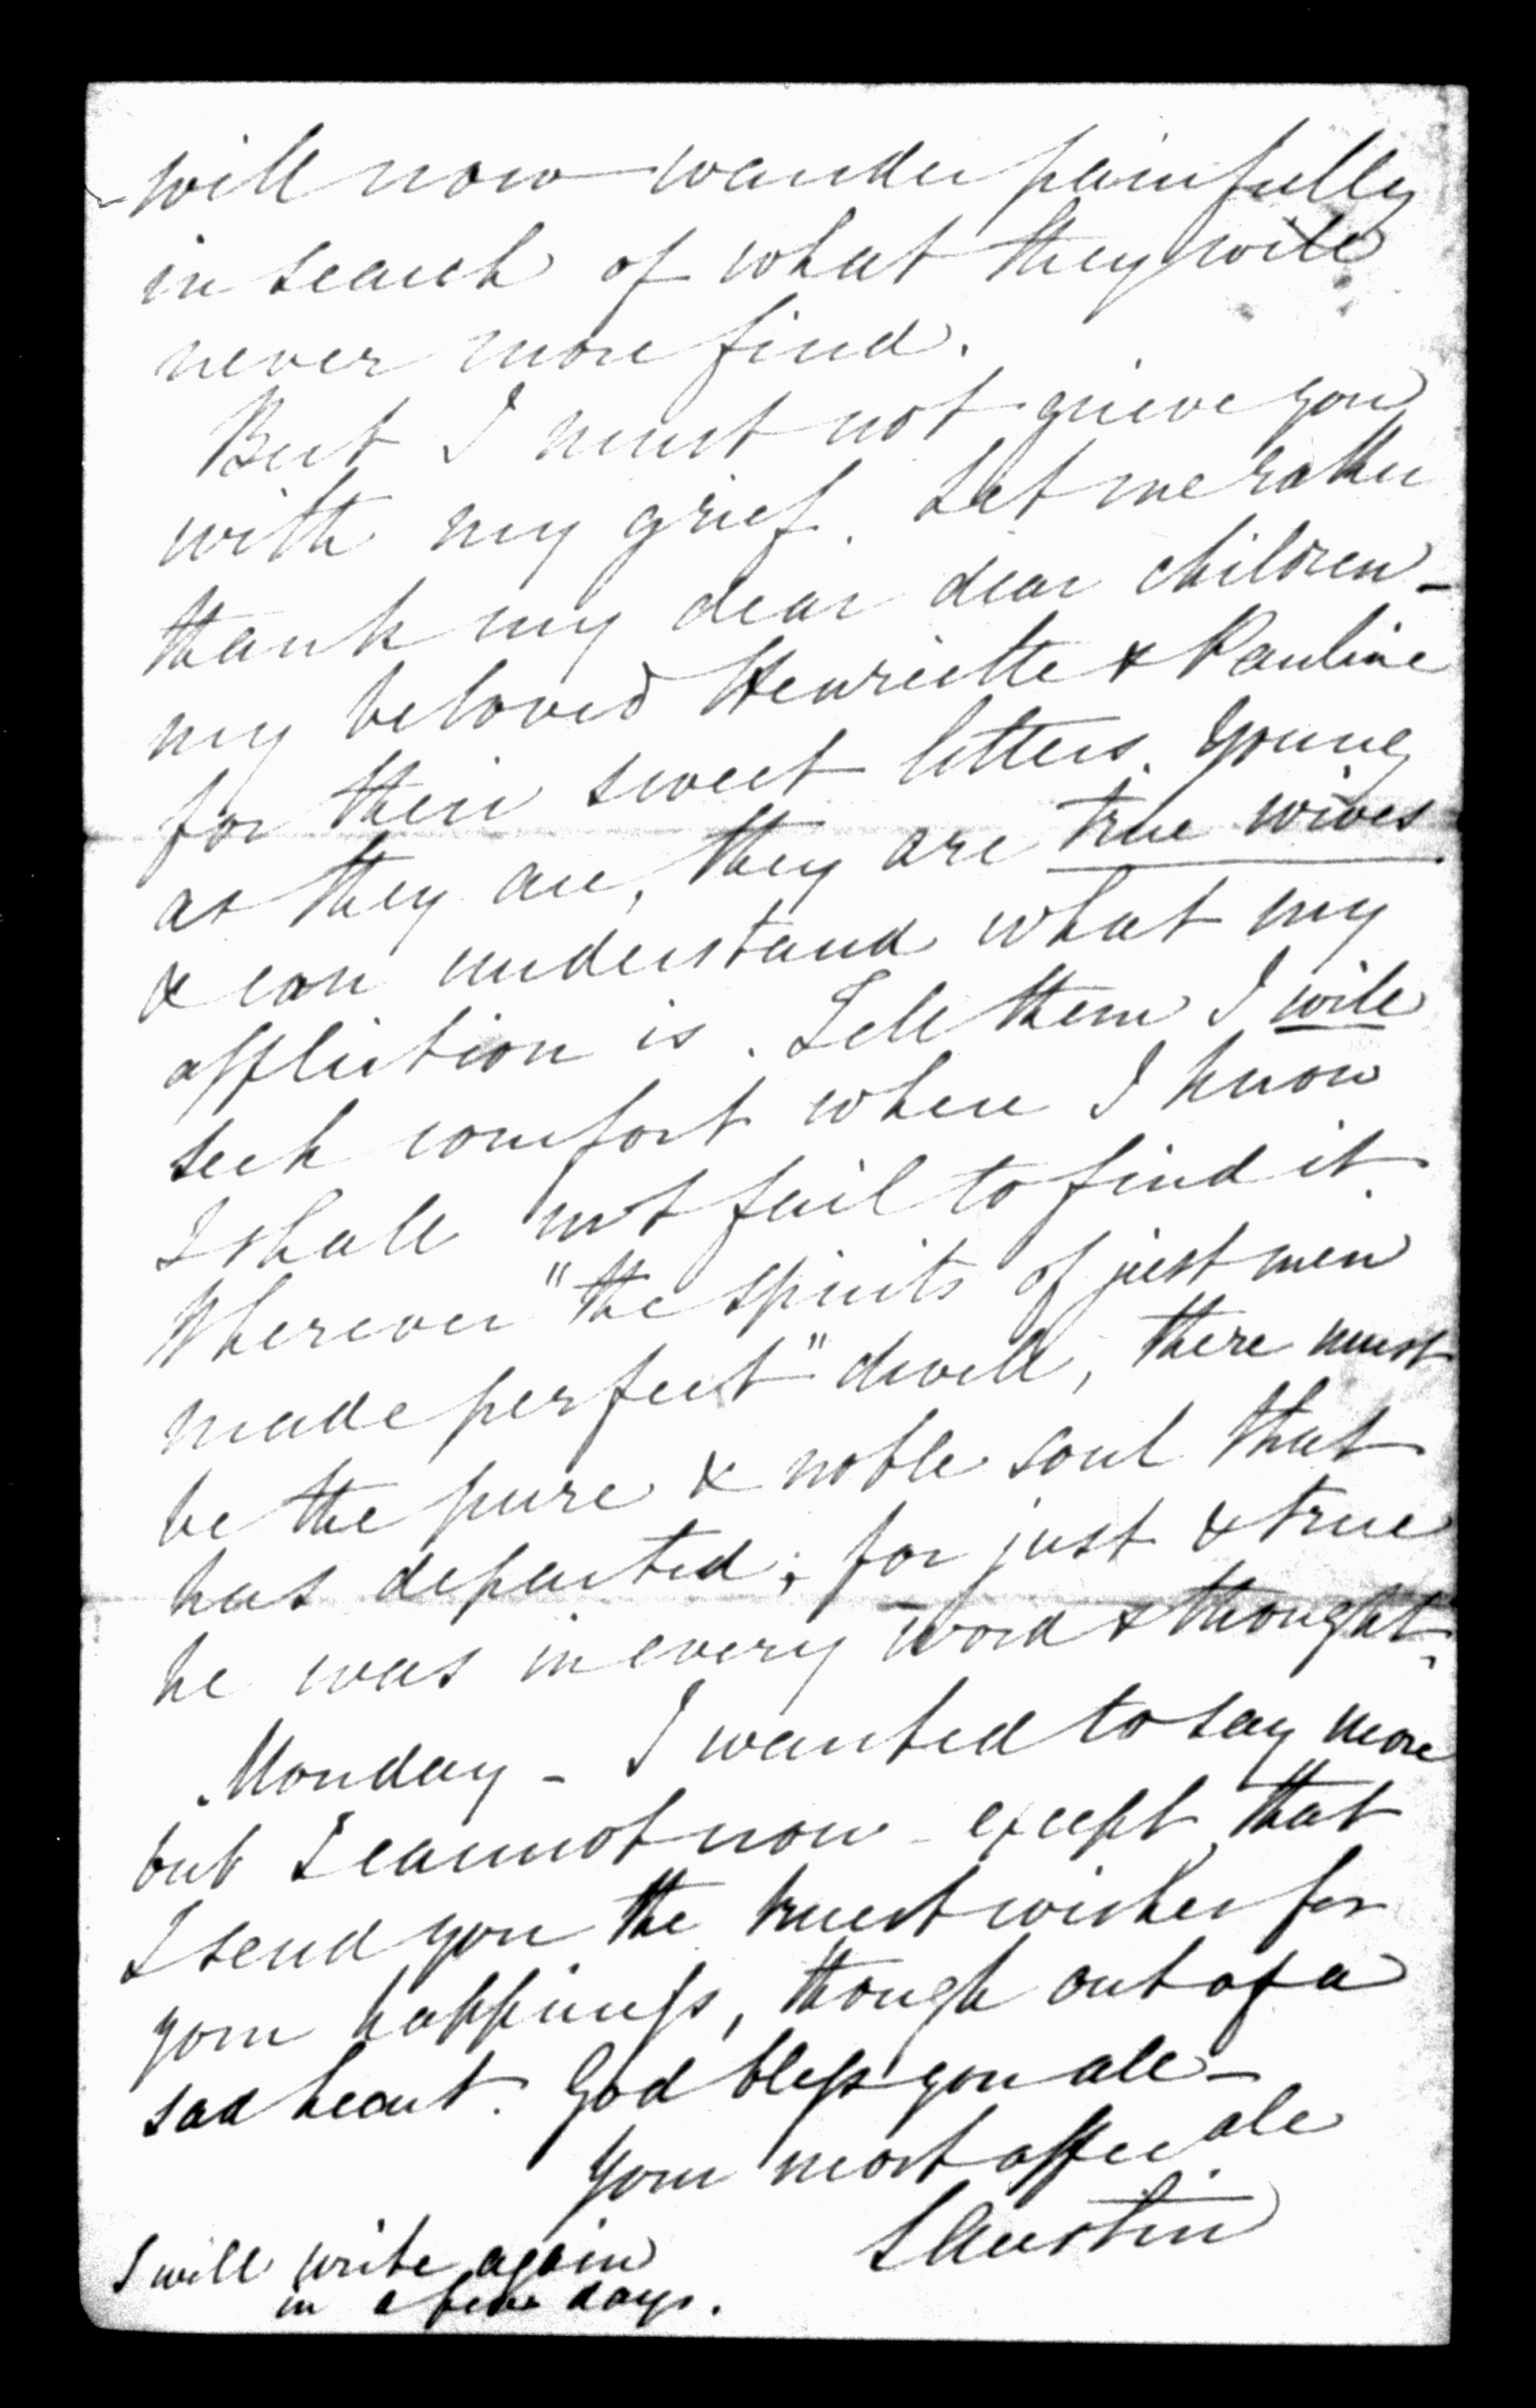 will now wander painfully
in search of what they will
never more find.
But I must not grieve you
with my grief. Let me rather
thank my dear dear children –
my beloved Henriette & Pauline
for their sweet letters. Young
as they are, they are true wives
& can understand what my
affliction is. Tell them I will
seek comfort where I know
I shall not fail to find it.
Wherever "the spirits of just men
made perfect" dwell, there must
be the pure & noble soul that
has departed; for just & true
he was in every word & thought.
Monday – I wanted to say more
but I cannot now – except that
I send you the truest wishes for
your happiness, though out of a
sad heart. God bless you all –
Your most affec ate
S Austin
I will write again
in a few days.